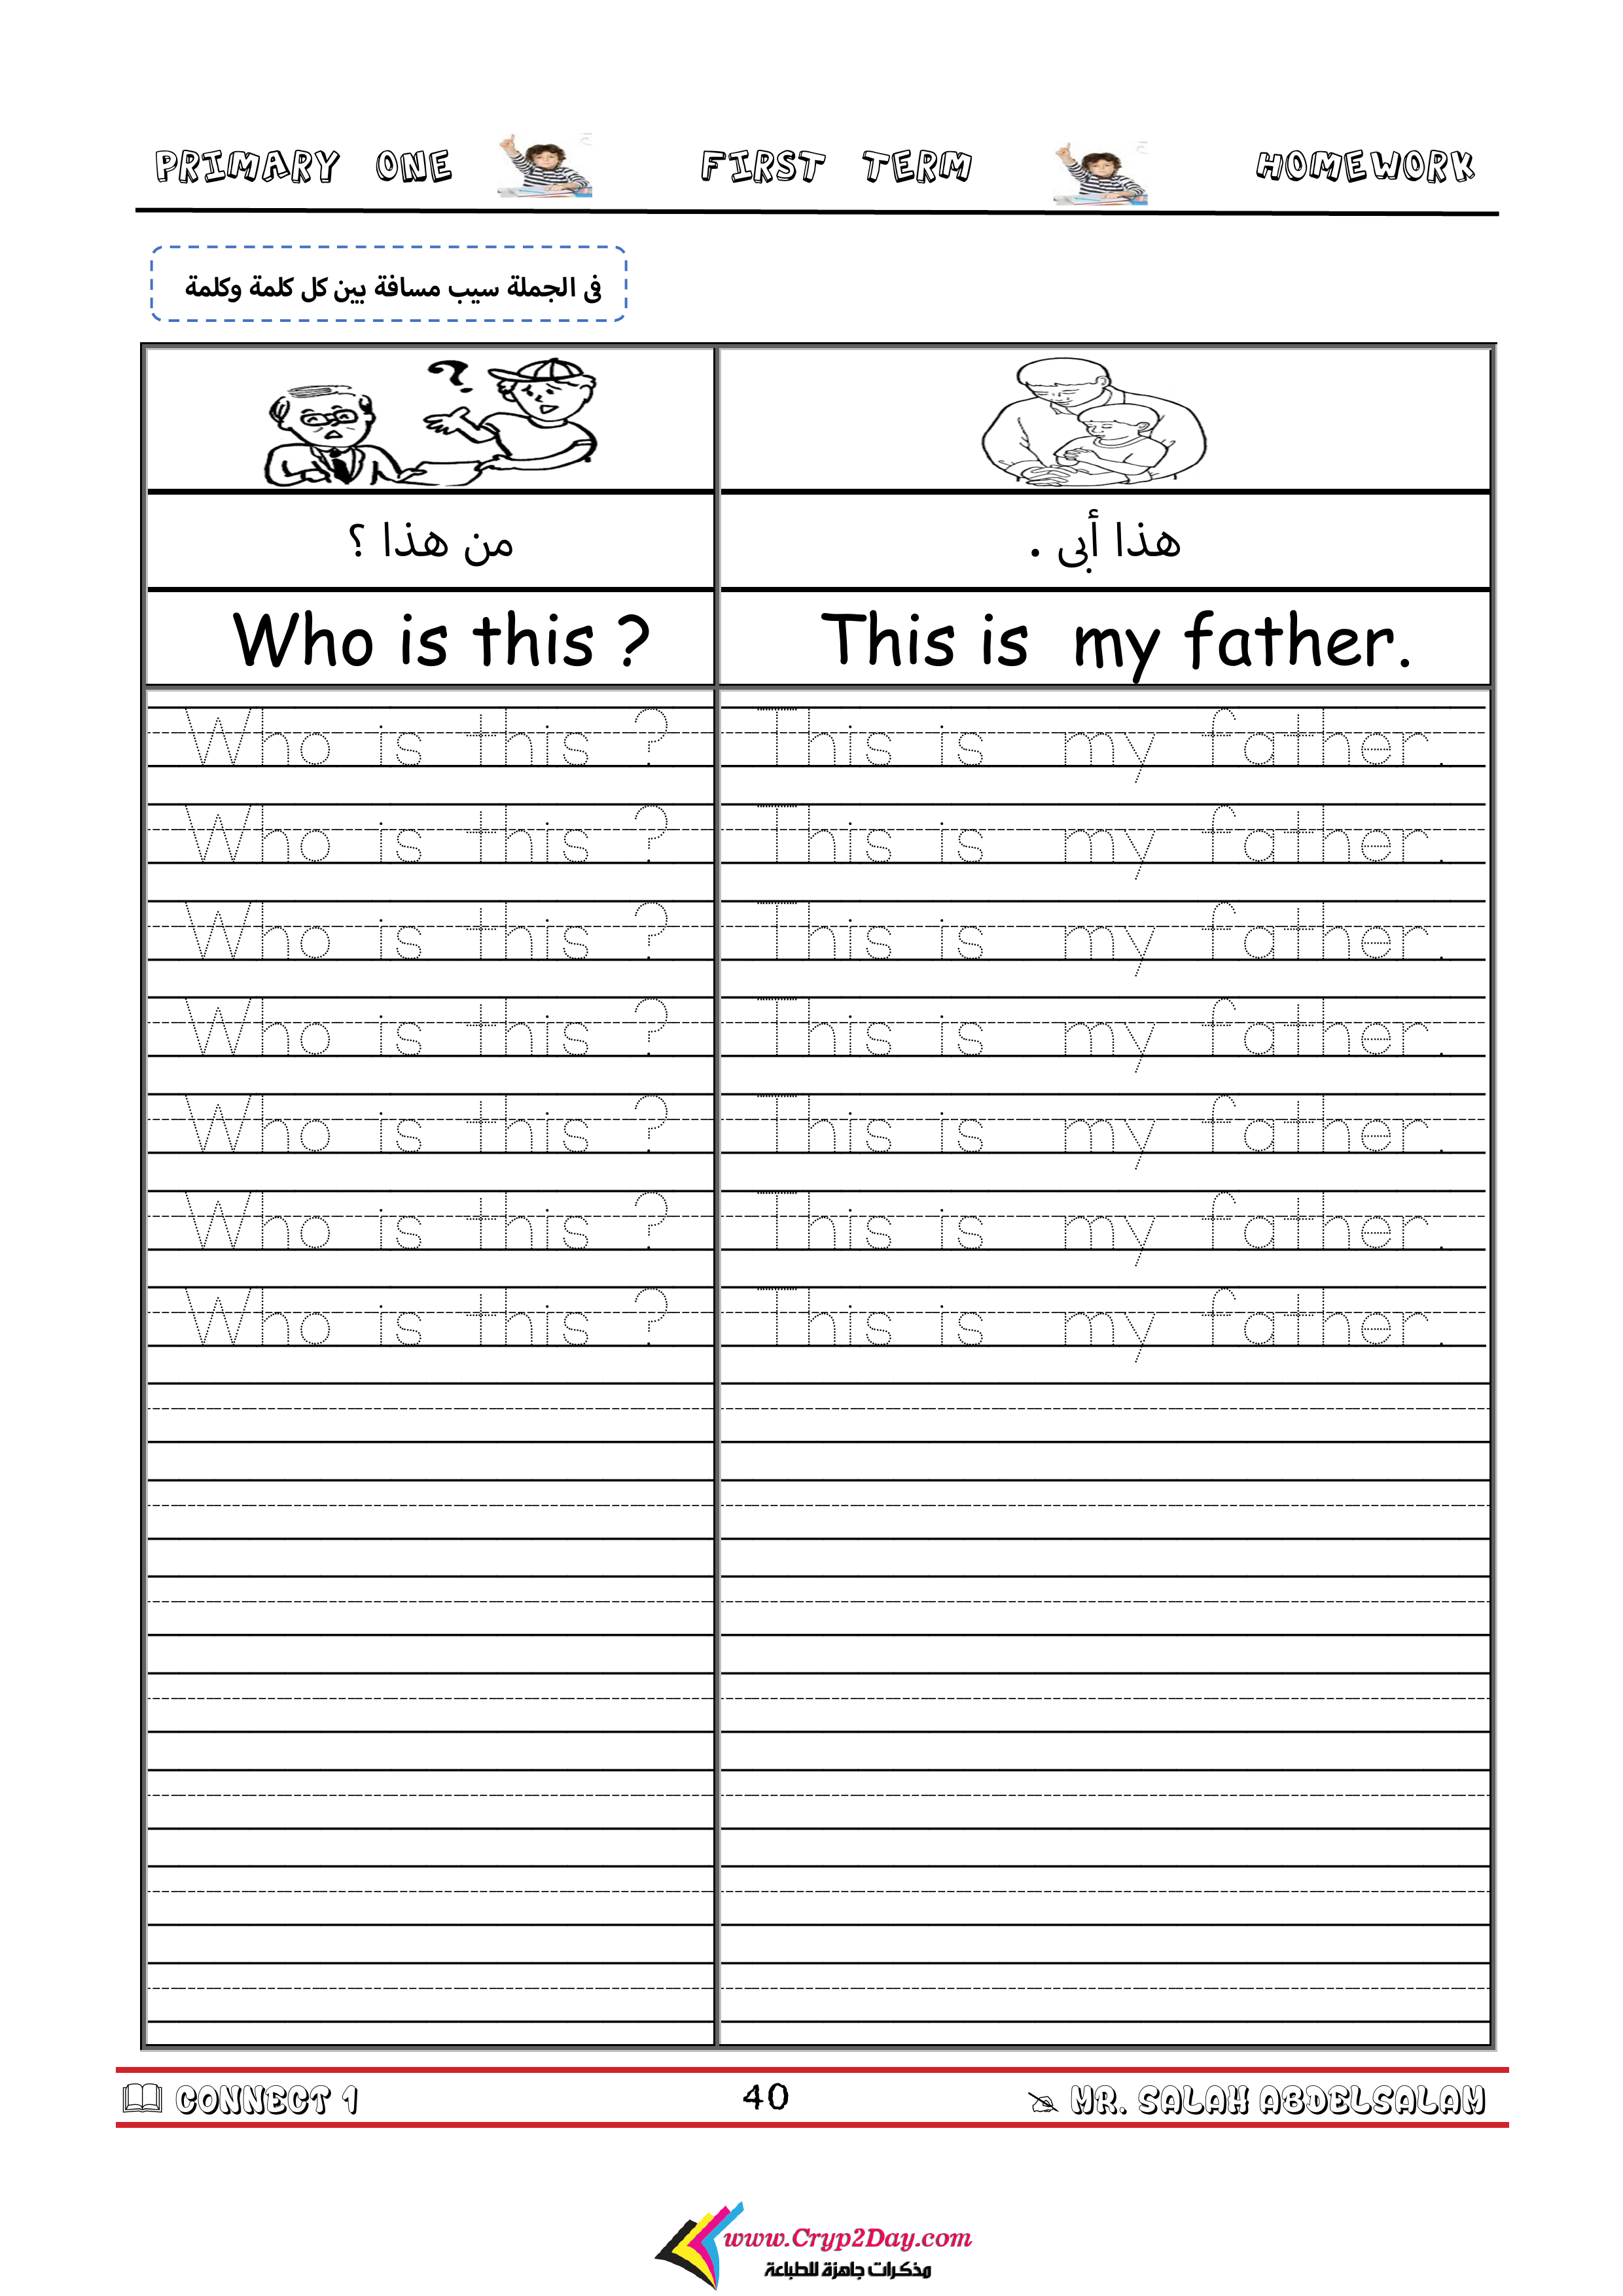 PRIMARY ONE FIRST TERM HOMEWORK
فى الجملة سيب مسافة بين كل كلمة وكلمة
?
من هذا ؟ هذا أبى .
Who is this ? This is my father.
Who is this ? This is my father.
Who is this ? This is my father.
Who is this ? This is my father.
Who is this ? This is my father.
Who is this ? This is my father.
Who is this ? This is my father.
Who is this ? This is my father.
CONNECT 1 40 MR. SALAH ABDELSALAM
www.Cryp2Day.com
مذكرات جاهزة للطباعة